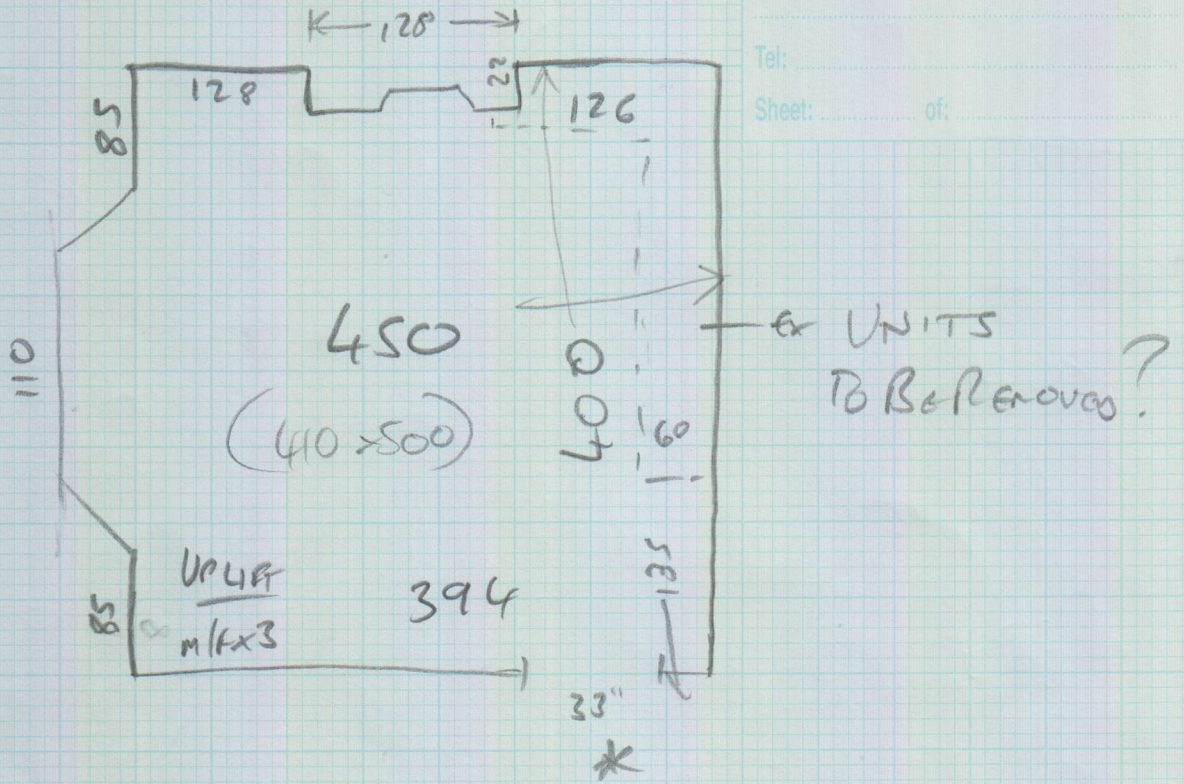 128
Tel:
Sheet: of:
85
128
22
126
110
450
(410 x 500)
400
Ex UNITS
TO BE REMOVED?
60
135
85
UPLIFT
m/f x 3
394
33"
*